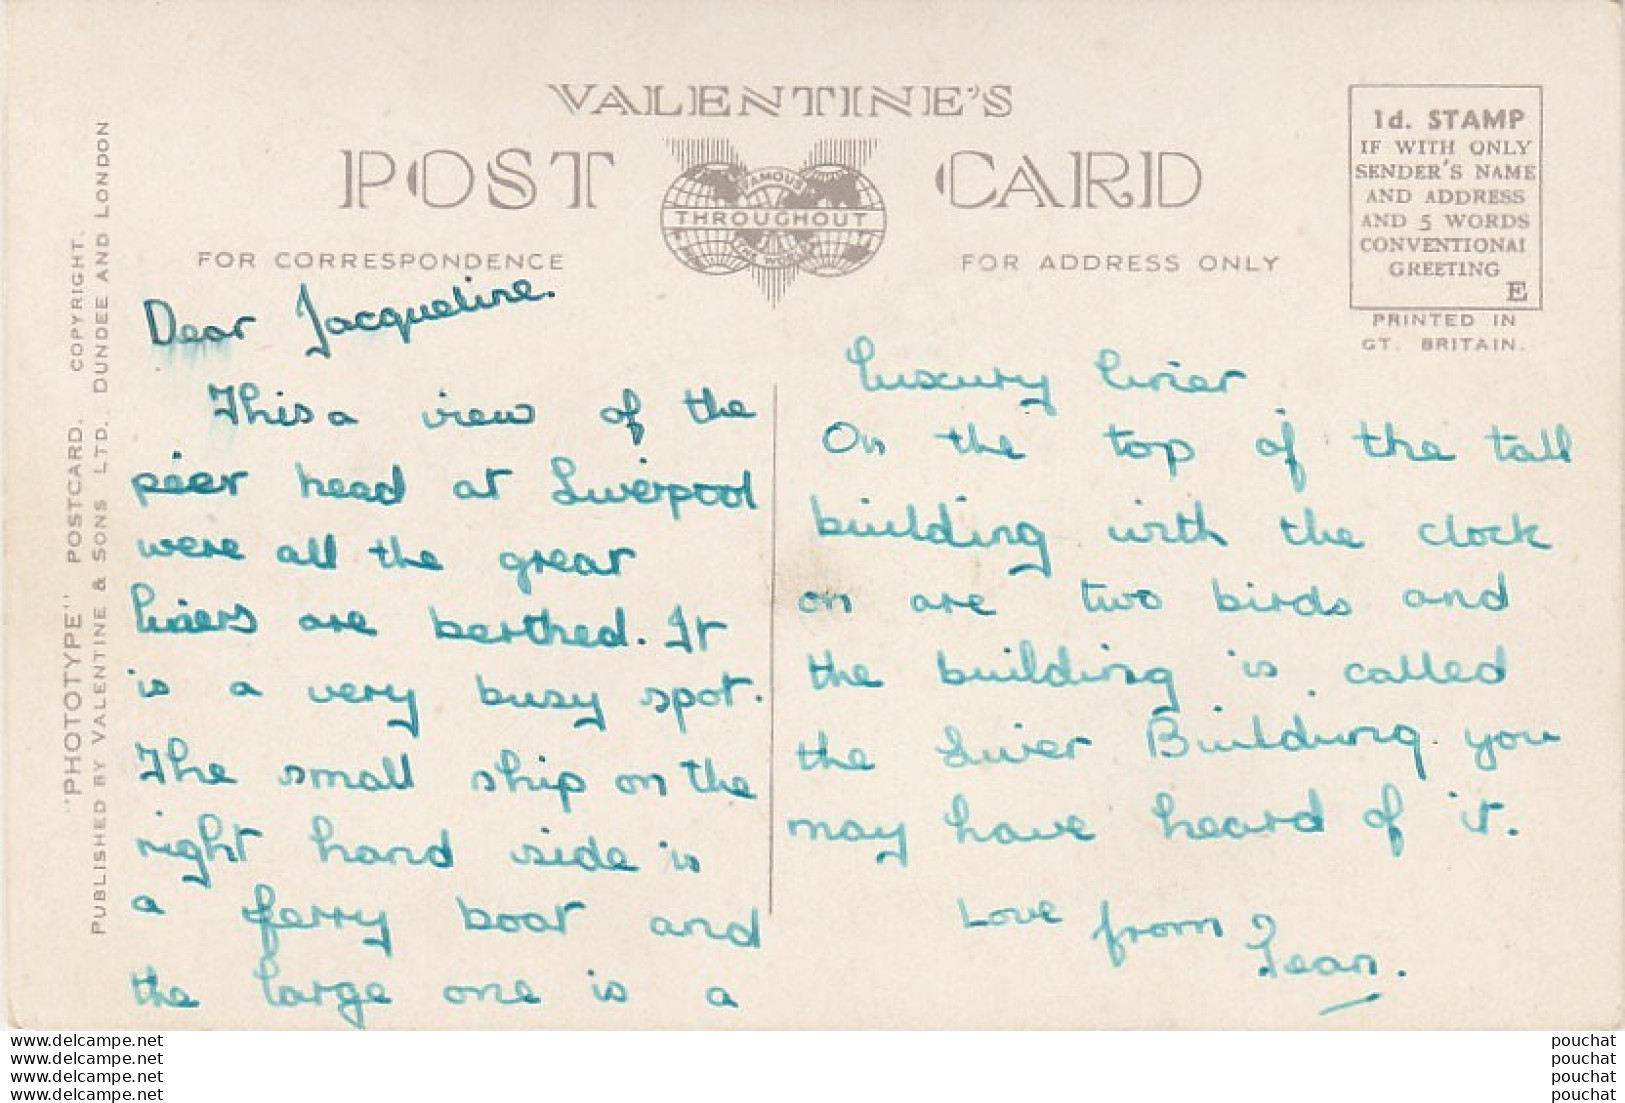 VALENTINE'S
POST CARD
FAMOUS
THROUGHOUT
THE WORLD
FOR CORRESPONDENCE
FOR ADDRESS ONLY
1d. STAMP
IF WITH ONLY
SENDER'S NAME
AND ADDRESS
AND 5 WORDS
CONVENTIONAL
GREETING
E
PRINTED IN
GT. BRITAIN.
"PHOTOTYPE" POSTCARD. COPYRIGHT.
PUBLISHED BY VALENTINE & SONS LTD. DUNDEE AND LONDON
Dear Jacqueline.
This a view of the
peer head at Liverpool
were all the great
liners are berthed. It
is a very busy spot.
The small ship on the
right hand side is
a ferry boat and
the large one is a
luxury liner
On the top of the tall
building with the clock
on are two birds and
the building is called
the Liver Building you
may have heard of it.
Love from
Jean.
www.delcampe.net
www.delcampe.net
www.delcampe.net
www.delcampe.net
pouchat
pouchat
pouchat
pouchat